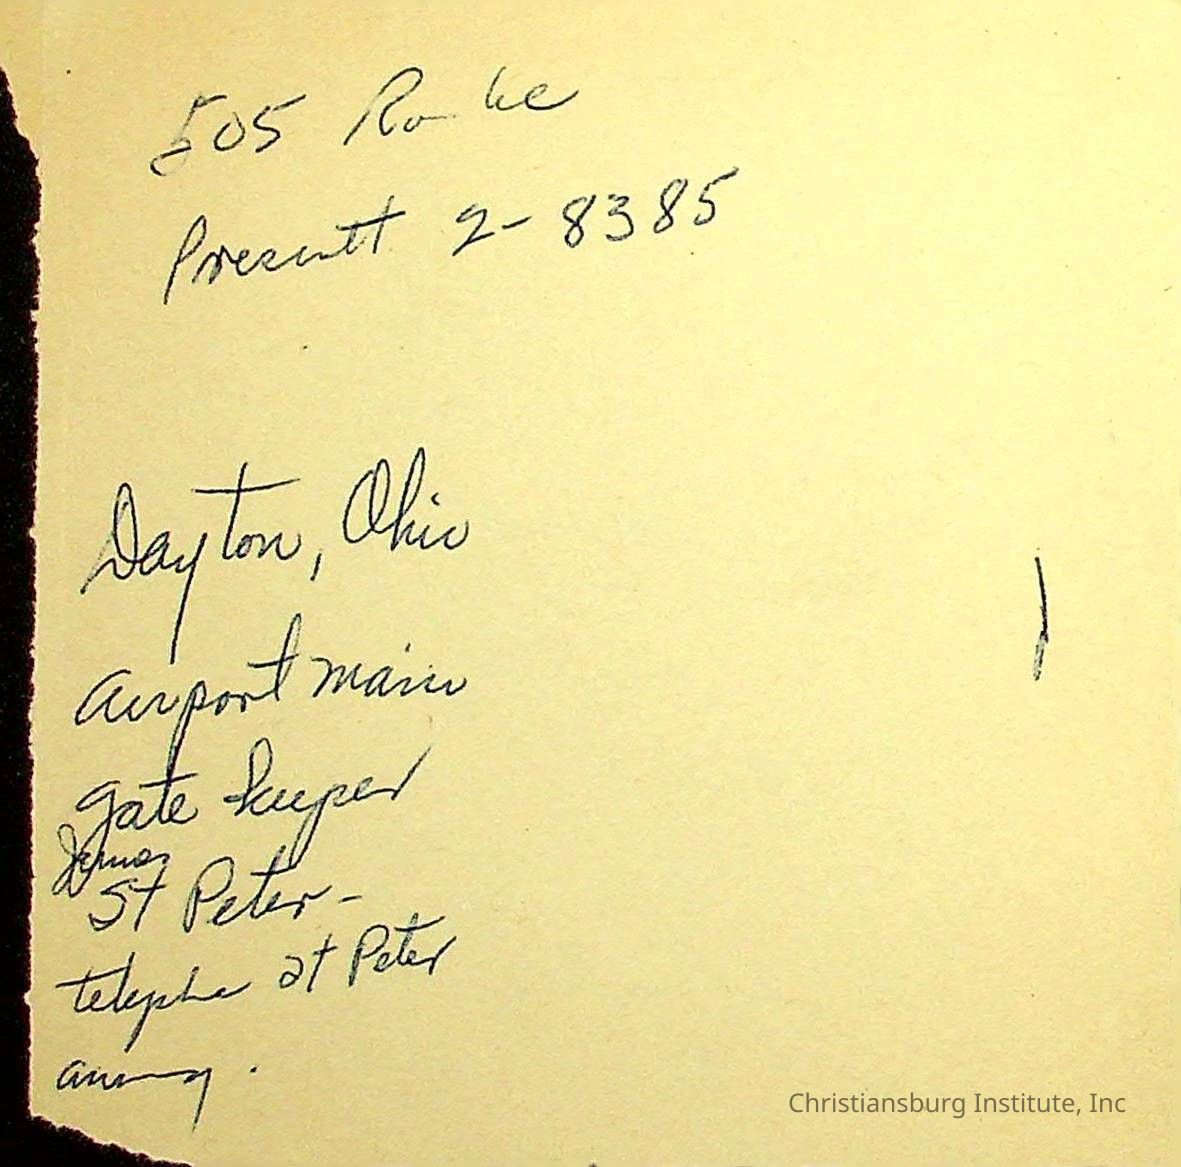 505
Prescott 2-8385
Dayton, Ohio
airport main
gate keeper
James
St Peter-
telephe St Peter
Christiansburg Institute, Inc